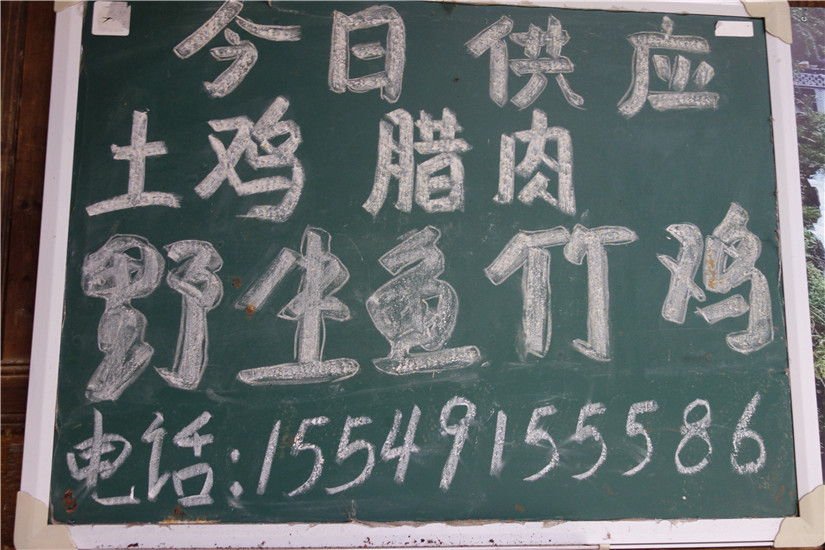 今日供应
土鸡 腊肉
野生鱼 竹鸡
电话:15549155586